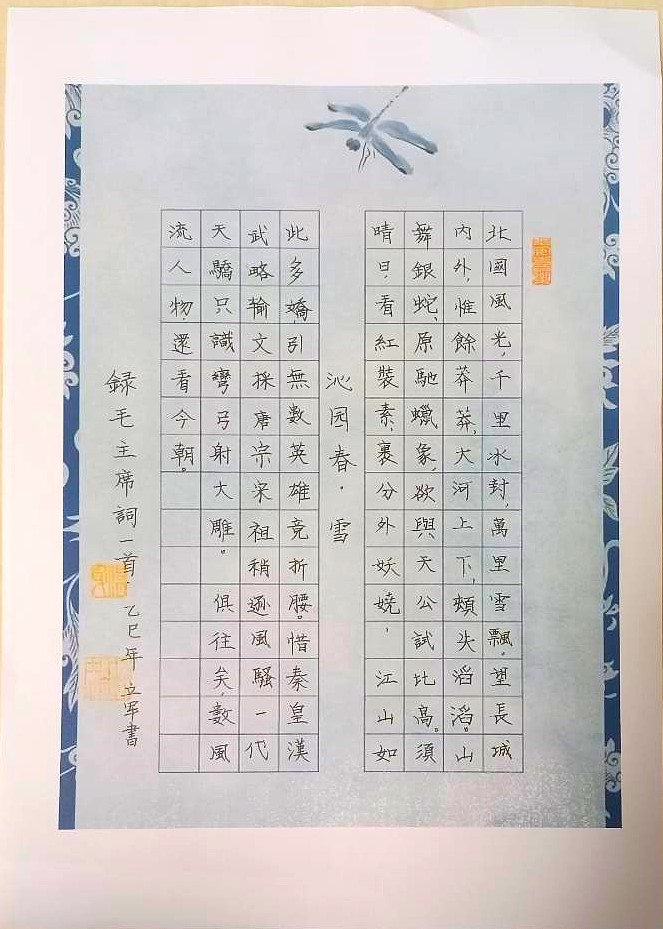 北國風光,千里冰封,萬里雪飄,望長城
内外,惟餘莽莽,大河上下,頓失滔滔。山
舞銀蛇、原馳蠟象,欲與天公試比高。須
晴日,看紅裝素,裹分外妖嬈, 江山如
沁园春·雪
此多嬌,引無數英雄竞折腰。惜秦皇漢
武略輸文採唐宗宋祖稍遜風騷一代
天驕只識彎弓射大雕。 俱往矣,數風
流人物,還看今朝。
録毛主席詞一首,乙巳年立军書